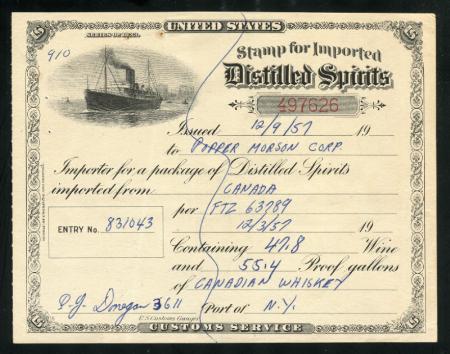 UNITED STATES
910
Stamp for Imported
Distilled Spirits
497626
Issued 12/9/57 19
to POPPER MORSON CORP.
Importer for a package of Distilled Spirits
imported from CANADA
per FTZ 63789
12/3/57 19
ENTRY No. 831043
Containing 47.8 Wine
and 55.4 Proof gallons
of CANADIAN WHISKEY
P.J. Donegan 3611 Port of N.Y.
U.S. Customs Gauger
CUSTOMS SERVICE